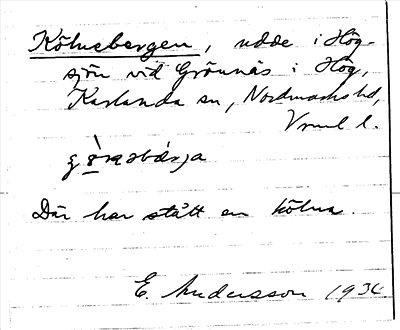 Kölnebergen, udde i Hög-
sjön vid Grönnäs i Hög,
Karlanda sn, Nordmarks hd,
Vrml l.
Där har stått en kölna.
E. Andersson 1934